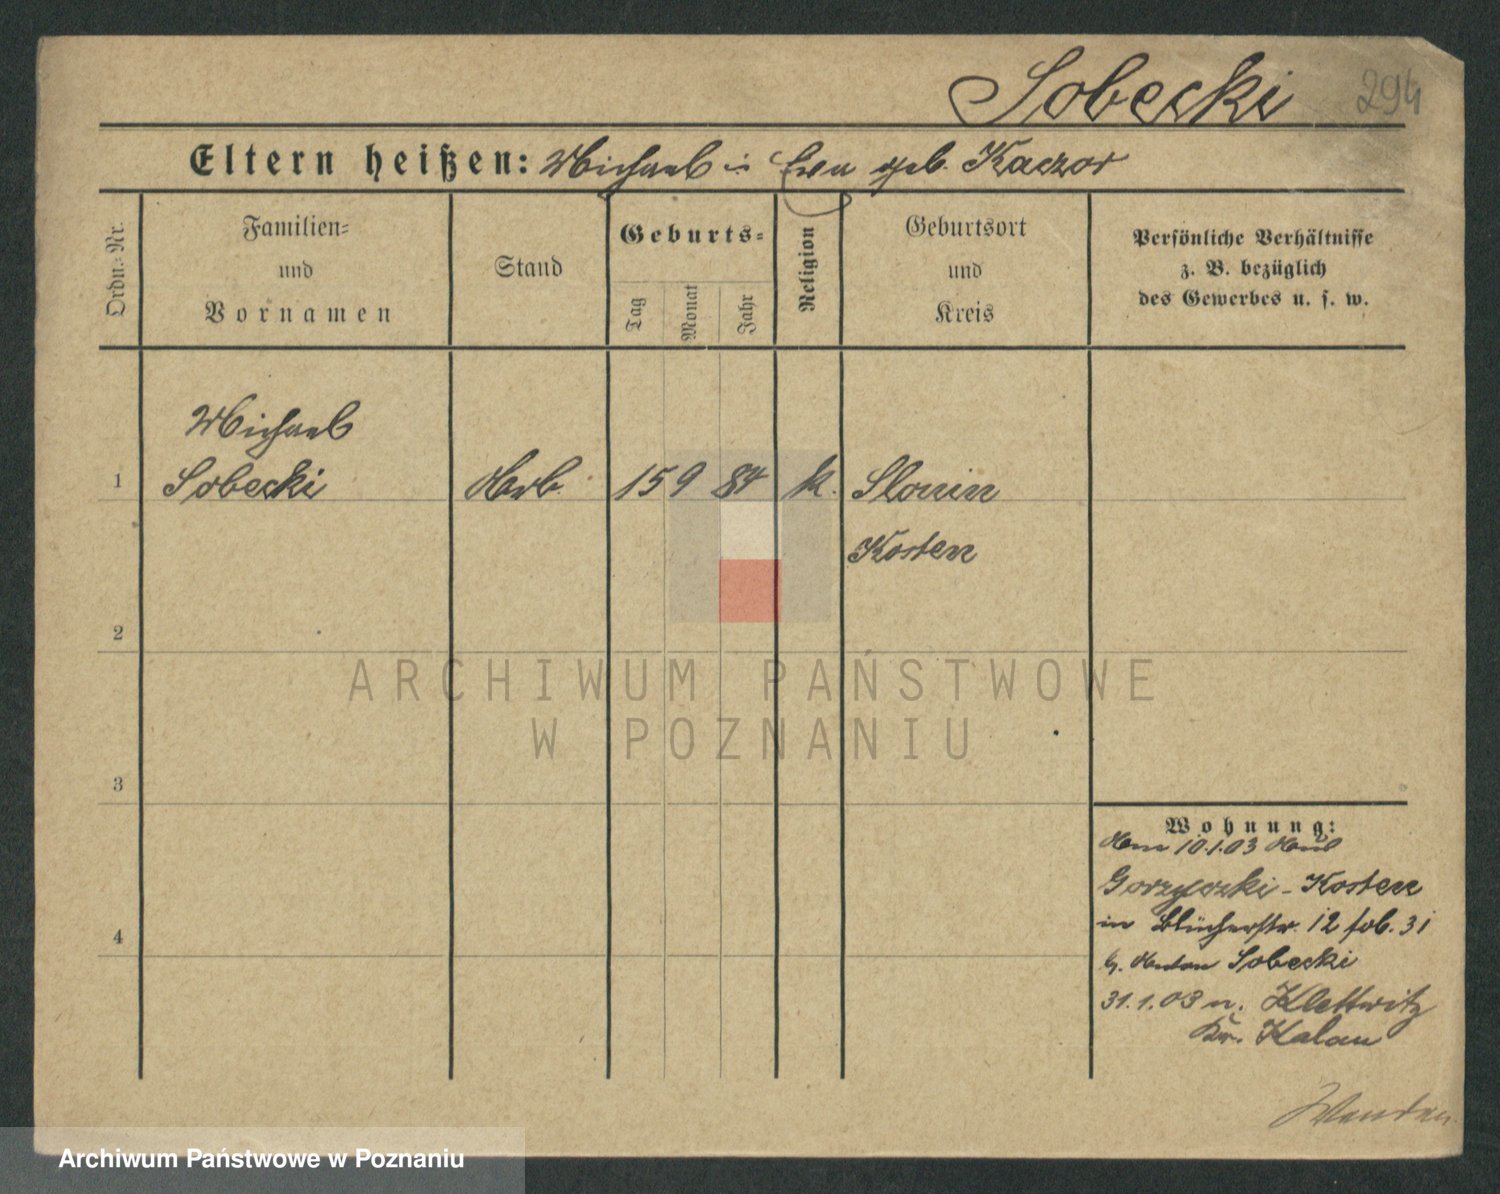 Sobecki 294
Eltern heißen: Michael u Eva geb. Kaczor
Ordn.-Nr.
Familien-
und
Vornamen
Stand
Geburts-
Tag
Monat
Jahr
Religion
Geburtsort
und
Kreis
Persönliche Verhältnisse
z. B. bezüglich
des Gewerbes u. s. w.
Michael
1 Sobecki Arb. 15 9 84 k. Slonin
Kosten
2
3
4
Wohnung:
Am 10.1.03
Gorzyczki - Kosten
in Blücherstr. 12 31
b. Anton Sobecki
31.1.03 n. Klettwitz
Kr. Kalau
ARCHIWUM PAŃSTWOWE
W POZNANIU
Archiwum Państwowe w Poznaniu